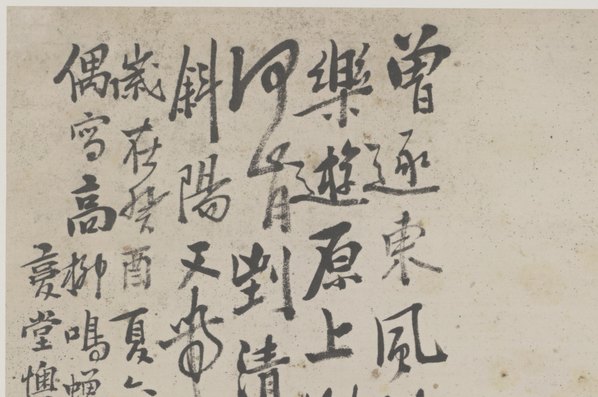 曾逐東風
樂遊原上
何肯到清
斜陽又帶
歲在癸酉夏
偶寫高柳鳴蟬
堂